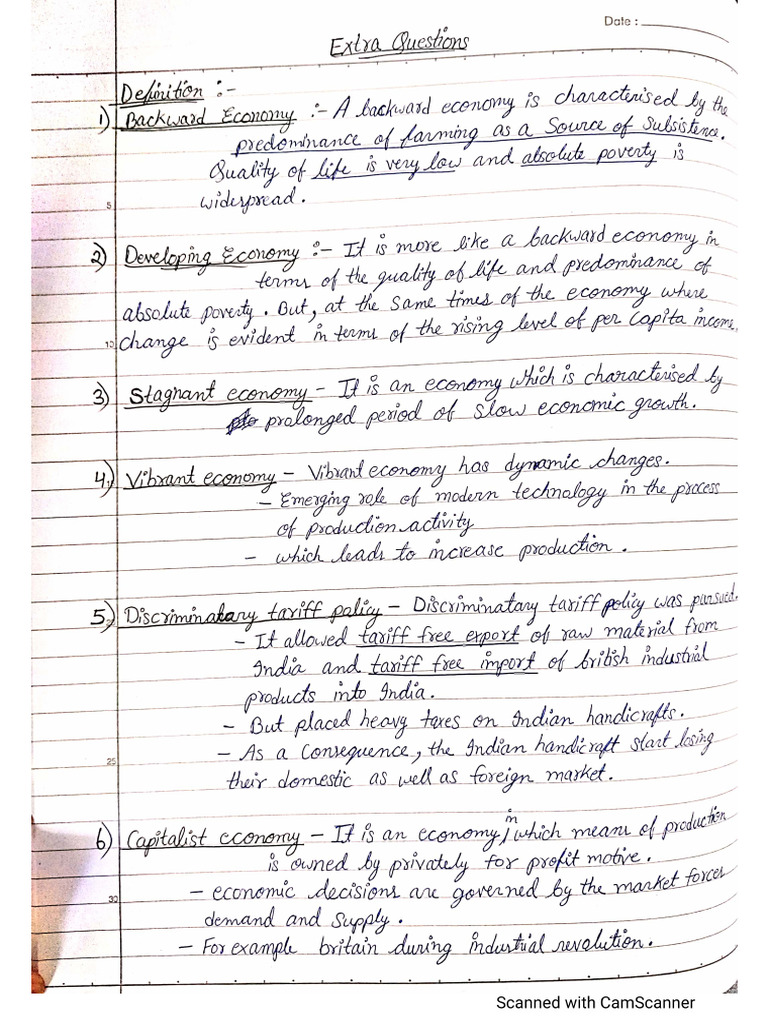 Date :
Extra Questions
Definition :-
1) Backward Economy :- A backward economy is characterised by the
predominance of farming as a Source of Subsistence.
Quality of life is very low and absolute poverty is
widespread.
5
2) Developing Economy :- It is more like a backward economy in
terms of the quality of life and predominance of
absolute poverty. But, at the same times of the economy where
10 change is evident in terms of the rising level of per Capita income.
3) Stagnant economy - It is an economy which is characterised by
prolonged period of slow economic growth.
4) Vibrant economy - Vibrant economy has dynamic changes.
- Emerging role of modern technology in the process
of production activity
- which leads to increase production.
5) Discriminatary tariff policy - Discriminatary tariff policy was pursued.
- It allowed tariff free export of raw material from
India and tariff free import of british industrial
products into India.
- But placed heavy taxes on Indian handicrafts.
25 - As a Consequence, the Indian handicraft start losing
their domestic as well as foreign market.
6) Capitalist economy - It is an economy, in which means of production
is owned by privately for profit motive.
30 - economic decisions are governed by the market forces
demand and Supply.
- For example britain during industrial revolution.
Scanned with CamScanner